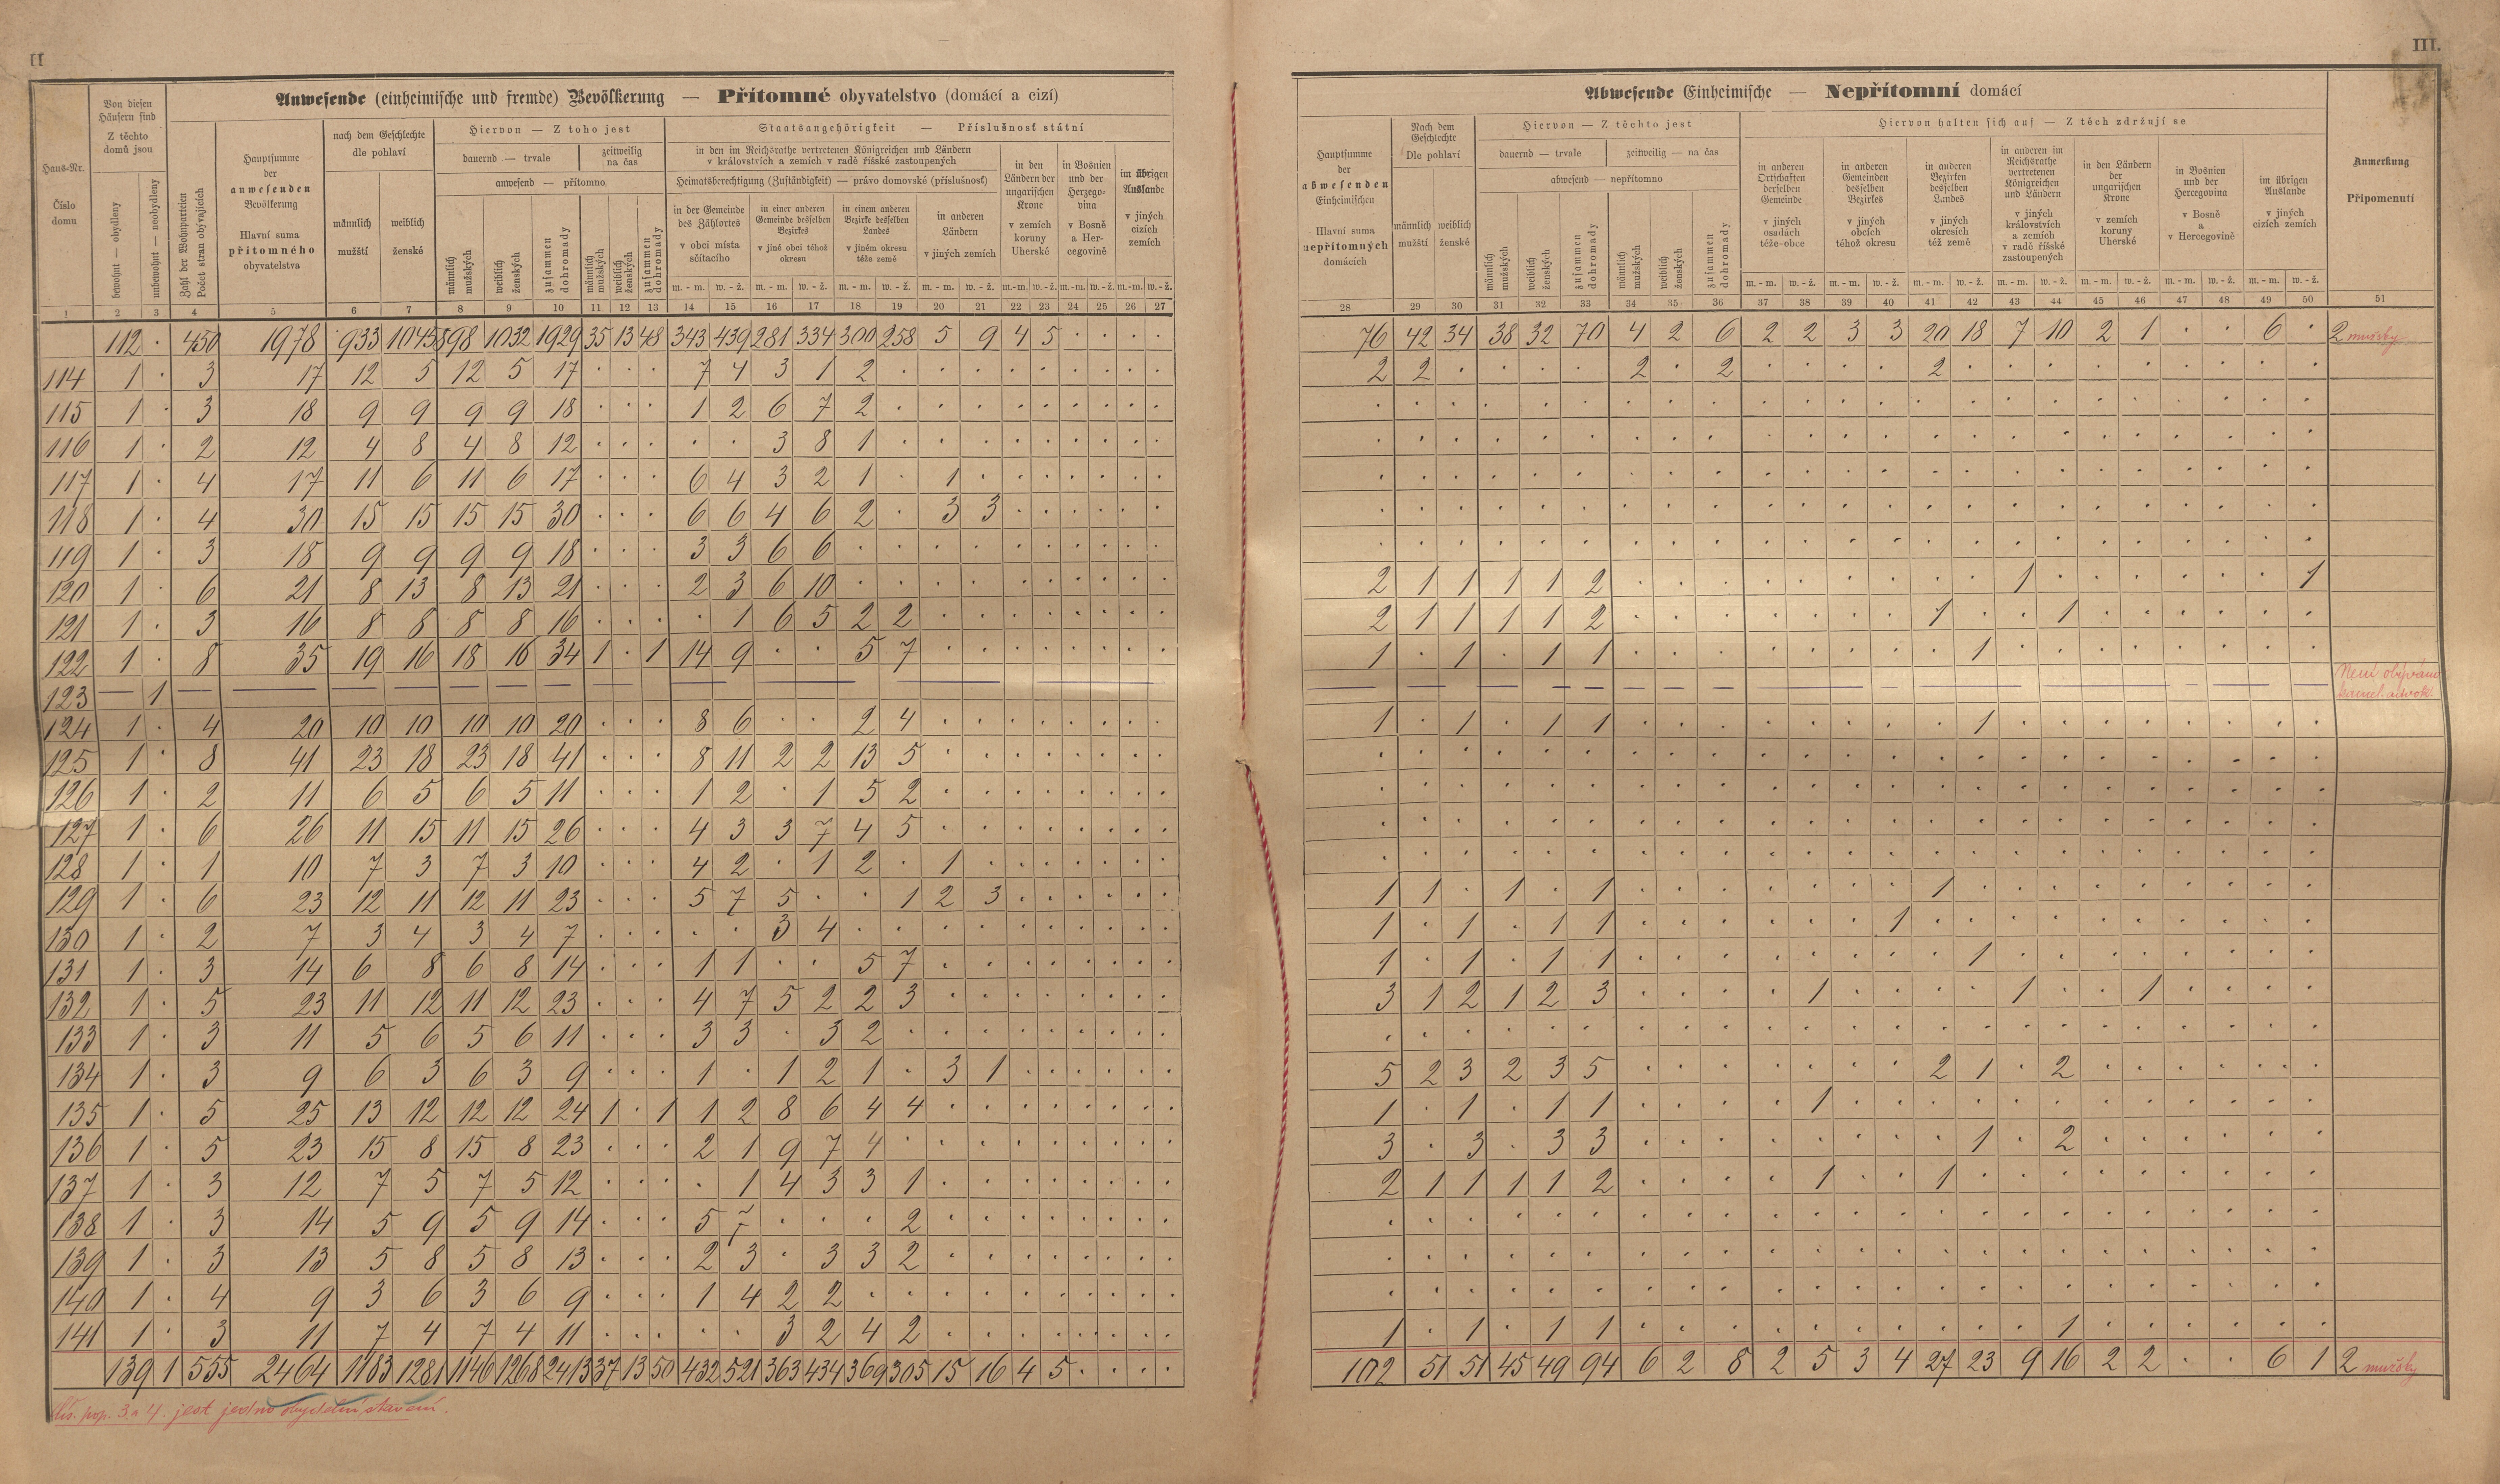 II
III.
Anwesende (einheimische und fremde) Bevölkerung — Přítomné obyvatelstvo (domácí a cizí)
Haus-Nr.
Číslo domu
Von diesen Häusern sind
Z těchto domů jsou
bewohnt — obydleny
unbewohnt — neobydleny
Zahl der Wohnparteien
Počet stran obývajících
Hauptsumme der anwesenden Bevölkerung
Hlavní suma přítomného obyvatelstva
nach dem Geschlechte
dle pohlaví
männlich mužští
weiblich ženské
Hiervon — Z toho jest
dauernd — trvale
zeitweilig na čas
anwesend — přítomno
männlich mužských
weiblich ženských
zusammen dohromady
männlich mužských
weiblich ženských
zusammen dohromady
Staatsangehörigkeit — Příslušnosť státní
in den im Reichsrathe vertretenen Königreichen und Ländern
v královstvích a zemích v radě říšské zastoupených
Heimatsberechtigung (Zuständigkeit) — právo domovské (příslušnosť)
in der Gemeinde des Zählortes
v obci místa sčítacího
in einer anderen Gemeinde desselben Bezirkes
v jiné obci téhož okresu
in einem anderen Bezirke desselben Landes
v jiném okresu téže země
in anderen Ländern
v jiných zemích
in den Ländern der ungarischen Krone
v zemích koruny Uherské
in Bosnien und der Herzegovina
v Bosně a Hercegovině
im übrigen Auslande
v jiných cizích zemích
m. - m. w. - ž. m. - m. w. - ž. m. - m. w. - ž. m. - m. w. - ž. m.-m. w.-ž. m.-m. w.-ž. m.-m. w.-ž.
1 2 3 4 5 6 7 8 9 10 11 12 13 14 15 16 17 18 19 20 21 22 23 24 25 26 27
112 · 450 1978 933 1045 898 1032 1929 35 13 48 343 439 281 334 300 258 5 9 4 5 · · · ·
114 1 · 3 17 12 5 12 5 17 · · · 7 4 3 1 2 · · · · · · · · ·
115 1 · 3 18 9 9 9 9 18 · · · 1 2 6 7 2 · · · · · · · · ·
116 1 · 2 12 4 8 4 8 12 · · · · · 3 8 1 · · · · · · · · ·
117 1 · 4 17 11 6 11 6 17 · · · 6 4 3 2 1 · 1 · · · · · · ·
118 1 · 4 30 15 15 15 15 30 · · · 6 6 4 6 2 · 3 3 · · · · · ·
119 1 · 3 18 9 9 9 9 18 · · · 3 3 6 6 · · · · · · · · · ·
120 1 · 6 21 8 13 8 13 21 · · · 2 3 6 10 · · · · · · · · · ·
121 1 · 3 16 8 8 8 8 16 · · · · 1 6 5 2 2 · · · · · · · ·
122 1 · 8 35 19 16 18 16 34 1 · 1 14 9 · · 5 7 · · · · · · · ·
123 — 1 — — — — — — — — — — — — —
124 1 · 4 20 10 10 10 10 20 · · · 8 6 · · 2 4 · · · · · · · ·
125 1 · 8 41 23 18 23 18 41 · · · 8 11 2 2 13 5 · · · · · · · ·
126 1 · 2 11 6 5 6 5 11 · · · 1 2 · 1 5 2 · · · · · · · ·
127 1 · 6 26 11 15 11 15 26 · · · 4 3 3 7 4 5 · · · · · · · ·
128 1 · 1 10 7 3 7 3 10 · · · 4 2 · 1 2 · 1 · · · · · · ·
129 1 · 6 23 12 11 12 11 23 · · · 5 7 5 · · 1 2 3 · · · · · ·
130 1 · 2 7 3 4 3 4 7 · · · · · 3 4 · · · · · · · · · ·
131 1 · 3 14 6 8 6 8 14 · · · 1 1 · · 5 7 · · · · · · · ·
132 1 · 5 23 11 12 11 12 23 · · · 4 7 5 2 2 3 · · · · · · · ·
133 1 · 3 11 5 6 5 6 11 · · · 3 3 · 3 2 · · · · · · · · ·
134 1 · 3 9 6 3 6 3 9 · · · 1 · 1 2 1 · 3 1 · · · · · ·
135 1 · 5 25 13 12 12 12 24 1 · 1 1 2 8 6 4 4 · · · · · · · ·
136 1 · 5 23 15 8 15 8 23 · · · 2 1 9 7 4 · · · · · · · · ·
137 1 · 3 12 7 5 7 5 12 · · · · 1 4 3 3 1 · · · · · · · ·
138 1 · 3 14 5 9 5 9 14 · · · 5 7 · · · 2 · · · · · · · ·
139 1 · 3 13 5 8 5 8 13 · · · 2 3 · 3 3 2 · · · · · · · ·
140 1 · 4 9 3 6 3 6 9 · · · 1 4 2 2 · · · · · · · · · ·
141 1 · 3 11 7 4 7 4 11 · · · · · 3 2 4 2 · · · · · · · ·
139 1 555 2464 1183 1281 1146 1268 2413 37 13 50 432 521 363 434 369 305 15 16 4 5 · · · ·
Čís. pop. 3 a 4. jest jedno obydlení stavení.
Abwesende Einheimische — Nepřítomní domácí
Hauptsumme der abwesenden Einheimischen
Hlavní suma nepřítomných domácích
Nach dem Geschlechte
Dle pohlaví
männlich mužští
weiblich ženské
Hiervon — Z těchto jest
dauernd — trvale
zeitweilig — na čas
abwesend — nepřítomno
männlich mužských
weiblich ženských
zusammen dohromady
männlich mužských
weiblich ženských
zusammen dohromady
Hiervon halten sich auf — Z těch zdržují se
in anderen Ortschaften derselben Gemeinde
v jiných osadách téže-obce
in anderen Gemeinden desselben Bezirkes
v jiných obcích téhož okresu
in anderen Bezirken desselben Landes
v jiných okresích též země
in anderen im Reichsrathe vertretenen Königreichen und Ländern
v jiných královstvích a zemích v radě říšské zastoupených
in den Ländern der ungarischen Krone
v zemích koruny Uherské
in Bosnien und der Hercegovina
v Bosně a v Hercegovině
im übrigen Auslande
v jiných cizích zemích
Anmerkung
Připomenutí
m. - m. w. - ž. m. - m. w. - ž. m. - m. w. - ž. m. - m. w. - ž. m. - m. w. - ž. m. - m. w. - ž. m. - m. w. - ž.
28 29 30 31 32 33 34 35 36 37 38 39 40 41 42 43 44 45 46 47 48 49 50 51
76 42 34 38 32 70 4 2 6 2 2 3 3 20 18 7 10 2 1 · · 6 · 2 mužsky
2 2 · · · · 2 · 2 · · · · 2 · · · · · · · · ·
· · · · · · · · · · · · · · · · · · · · · · ·
· · · · · · · · · · · · · · · · · · · · · · ·
· · · · · · · · · · · · · · · · · · · · · · ·
· · · · · · · · · · · · · · · · · · · · · · ·
· · · · · · · · · · · · · · · · · · · · · · ·
2 1 1 1 1 2 · · · · · · · · · 1 · · · · · · 1
2 1 1 1 1 2 · · · · · · · 1 · · 1 · · · · · ·
1 · 1 · 1 1 · · · · · · · · 1 · · · · · · · ·
— — — — — — — — — — — — — — — Není obýváno
1 · 1 · 1 1 · · · · · · · · 1 · · · · · · · ·
· · · · · · · · · · · · · · · · · · · · · · ·
· · · · · · · · · · · · · · · · · · · · · · ·
· · · · · · · · · · · · · · · · · · · · · · ·
· · · · · · · · · · · · · · · · · · · · · · ·
1 1 · 1 · 1 · · · · · · · 1 · · · · · · · · ·
1 · 1 · 1 1 · · · · · · 1 · · · · · · · · · ·
1 · 1 · 1 1 · · · · · · · · 1 · · · · · · · ·
3 1 2 1 2 3 · · · · 1 · · · · 1 · · 1 · · · ·
· · · · · · · · · · · · · · · · · · · · · · ·
5 2 3 2 3 5 · · · · · · · 2 1 · 2 · · · · · ·
1 · 1 · 1 1 · · · · 1 · · · · · · · · · · · ·
3 · 3 · 3 3 · · · · · · · · 1 · 2 · · · · · ·
2 1 1 1 1 2 · · · · 1 · · 1 · · · · · · · · ·
· · · · · · · · · · · · · · · · · · · · · · ·
· · · · · · · · · · · · · · · · · · · · · · ·
· · · · · · · · · · · · · · · · · · · · · · ·
1 · 1 · 1 1 · · · · · · · · · · 1 · · · · · ·
102 51 51 45 49 94 6 2 8 2 5 3 4 27 23 9 16 2 2 · · 6 1 2 mužsky